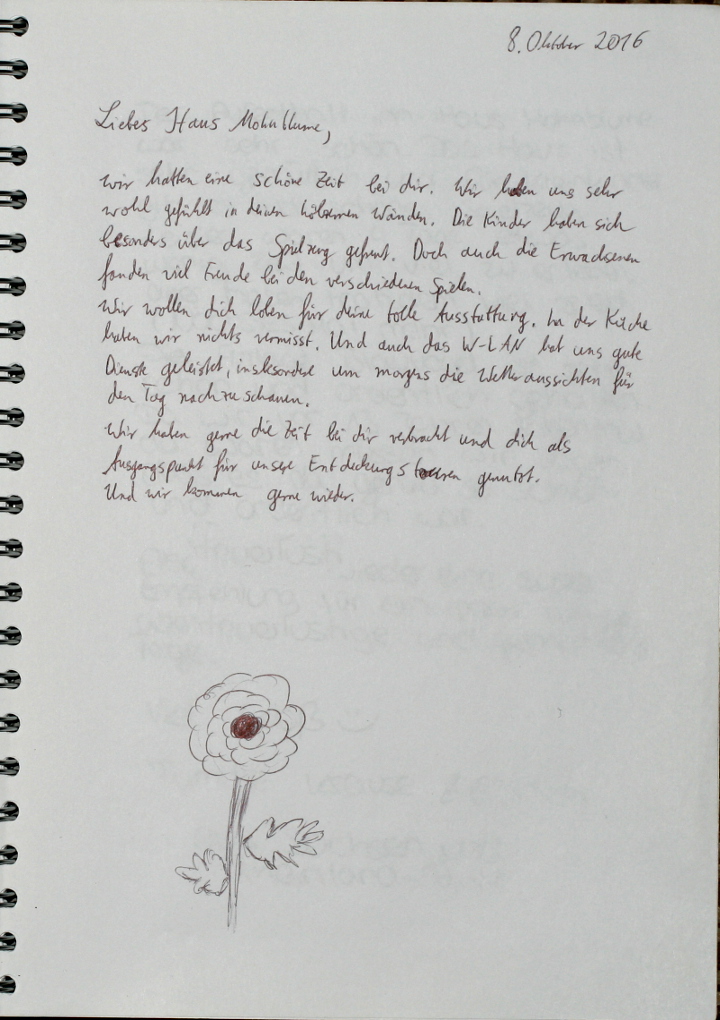 8. Oktober 2016
Liebes Haus Mohnblume,
wir hatten eine schöne Zeit bei dir. Wir haben uns sehr
wohl gefühlt in deinen hölzernen Wänden. Die Kinder haben sich
besonders über das Spielzeug gefreut. Doch auch die Erwachsenen
fanden viel Freude bei den verschiedenen Spielen.
Wir wollen dich loben für deine tolle Ausstattung. In der Küche
haben wir nichts vermisst. Und auch das W-LAN hat uns gute
Dienste geleistet, insbesondere um morgens die Wetteraussichten für
den Tag nachzuschauen.
Wir haben gerne die Zeit bei dir verbracht und dich als
Ausgangspunkt für unsere Entdeckungstouren genutzt.
Und wir kommen gerne wieder.